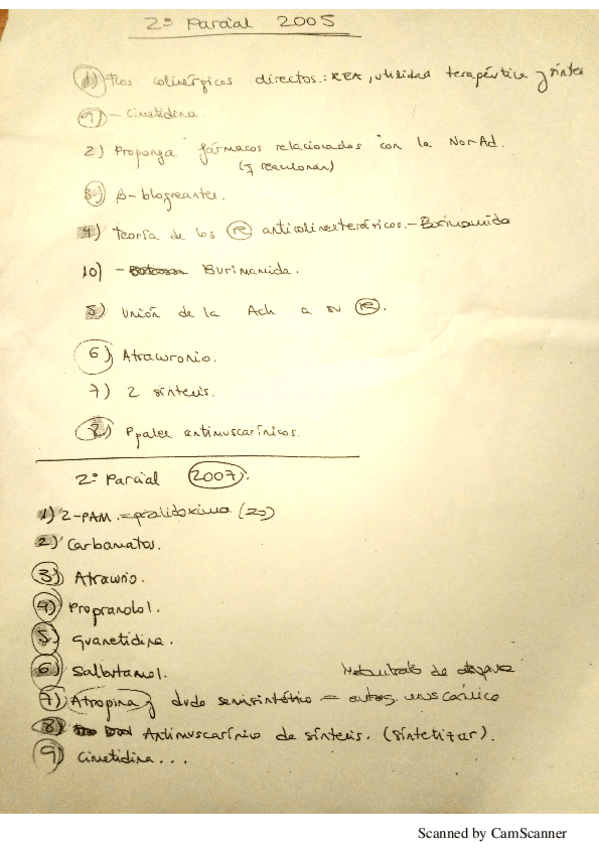 2º Parcial 2005
1) Ttos colinérgicos directos: REA, utilidad terapéutica y síntes
9) - Cimetidina.
2) Proponga fármacos relacionados con la NorAd.
(q reaccionan)
3) β-bloqueantes.
4) Teoría de los R anticolinesterásicos. - Burimamida
10) - Burimamida.
5) Unión de la Ach a su R.
6) Atracuronio.
7) 2 síntesis.
8) Ppales antimuscarínicos.
2º Parcial 2007.
1) 2-PAM. = pralidoxima
2) Carbamatos.
3) Atracurio.
4) Propranolol.
5) Guanetidina.
6) Salbutamol.
de
7) Atropina y dvdo semisintético =
8) Antimuscarínico de síntesis. (sintetizar).
9) Cimetidina...
Scanned by CamScanner